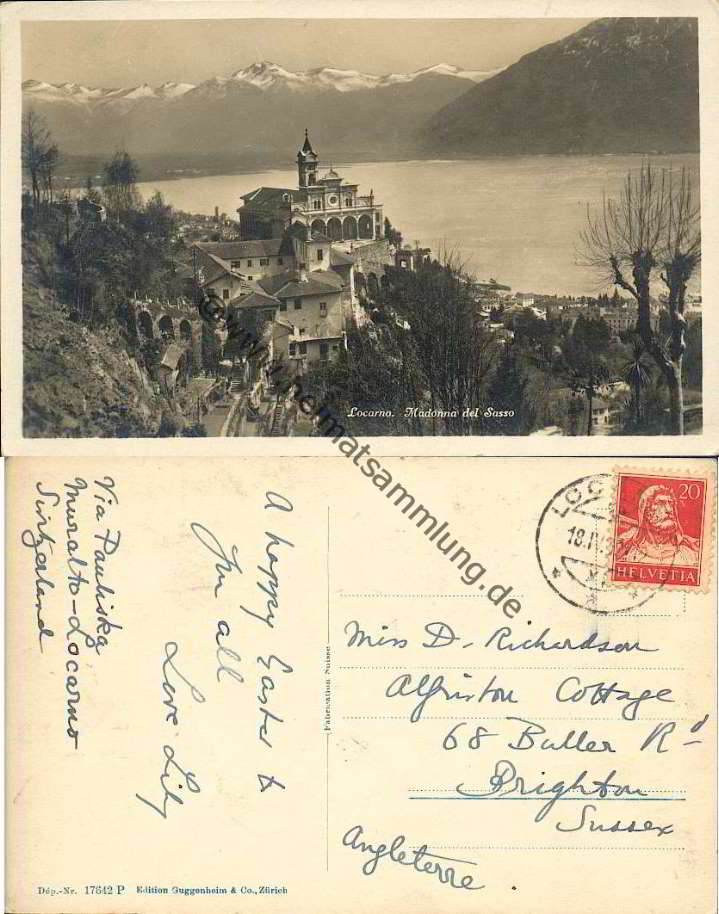 Locarno. Madonna del Sasso
©www.heimatsammlung.de
Via Pauliska
Muralto-Locarno
Switzerland
A happy Easter to
you all
Love Lily
Fabrication Suisse
LOC
18.IV
20
HELVETIA
Miss D. Richardson
Alfriston Cottage
68 Buller Rd
Brighton
Sussex
Angleterre
Dép.-Nr. 17642 P Edition Guggenheim & Co., Zürich